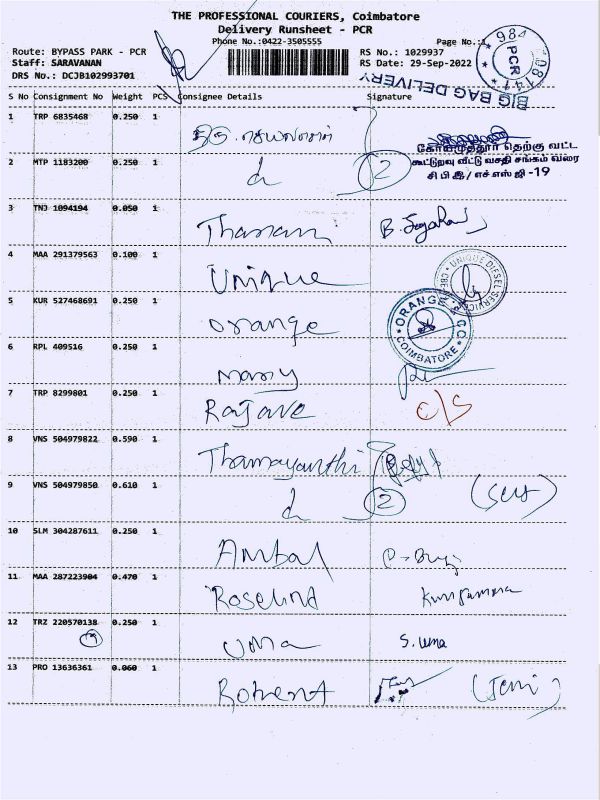 THE PROFESSIONAL COURIERS, Coimbatore
Delivery Runsheet - PCR
Phone No.:0422-3505555
Page No.:1
Route: BYPASS PARK - PCR
RS No.: 1029937
Staff: SARAVANAN
RS Date: 29-Sep-2022
DRS No.: DCJB102993701
PCR
BIG BAG DELIVERY
S No Consignment No Weight PCS Consignee Details Signature
1 TRP 6835468 0.250 1
கோயமுத்தூர் தெற்கு வட்ட
கூட்டுறவு வீட்டு வசதி சங்கம் வரை
சி பி இ/ எச் எஸ் ஜி -19
2 MTP 1183200 0.250 1
2
3 TNJ 1094194 0.050 1
4 MAA 291379563 0.100 1
Unique
UNIQUE DIESEL SERVICE
5 KUR 527468691 0.250 1
Orange
ORANGE
COIMBATORE
6 RPL 409516 0.250 1
7 TRP 8299801 0.250 1
C/S
8 VNS 504979822 0.590 1
Thamayanthi
9 VNS 504979850 0.610 1
2
10 SLM 304287611 0.250 1
Ambal
11 MAA 287223904 0.470 1
Roselind
12 TRZ 220570138 0.250 1
Uma S. Uma
13 PRO 13636361 0.060 1
(Jeni)